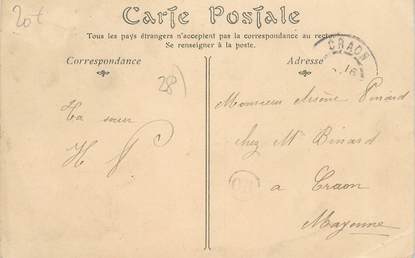 20t
Carte Postale
Tous les pays étrangers n'acceptent pas la correspondance au recto.
Se renseigner à la poste.
Correspondance
Adresse
CRAON
16
28)
Ta sœur
H P
Monsieur Arsène Pinard
chez Mr Binard
a Craon
Mayenne